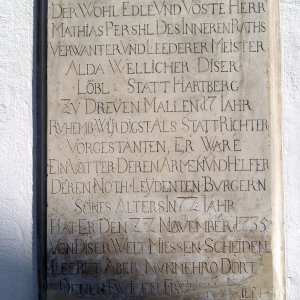 DER WOHL EDLE VND VÖSTE HERR
MATHIAS PERSHL DES INNEREN RATHS
VERWANTER VND LEEDERER MEISTER
ALDA WELLICHER DISER
LÖBL: STATT HARTBERG
ZV DREVEN MALLEN 17 IAHR
RVHEMB WÜRDIGST ALS STATT RICHTER
VORGESTANTEN, ER WARE
EIN VOTTER DEREN ARMEN VND HELFER
DEREN NOTH LEYDENTEN BURGERN
SEINES ALTERS IN 77 IAHR
HAT ER DEN 27 NOVEMBER 1735
VON DISER WELT MIESSEN SCHEIDEN
LEEBT ABER NVNMEHRO DORT
DENEN EWIGEN FREYDEN